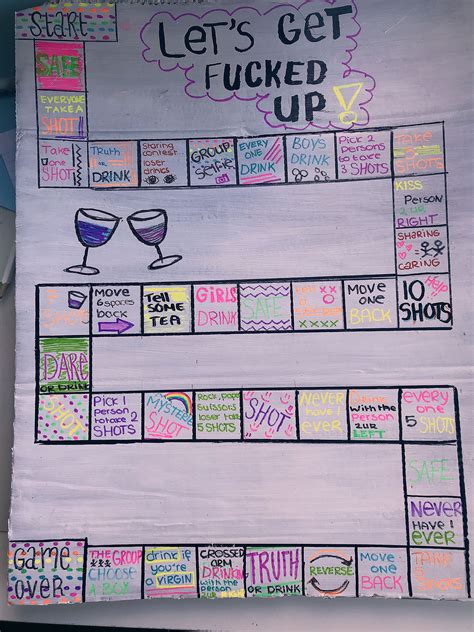 Start
LET'S GET
FUCKED
UP!
SAFE
EVERYONE
TAKE A
SHOT!
Take
one
SHOT
Truth
or
DRINK
Staring
contest
loser
drinks
GROUP
SELFIE
EVERY
ONE
DRINK
BOYS
DRINK
Pick 2
persons
to take
3 SHOTS
Take
SHOTS
KISS
Person
2 UR
RIGHT
SHARING
CARING
10
SHOTS
Move
one
BACK
SAFE
GIRLS
DRINK
TELL
SOME
TEA
MOVE
6 spaces
back
SHOTS
DARE
OR DRINK
SHOT
Pick 1
Person
to take 2
SHOTS
MYSTERIE
SHOT
Rock, Pape
Scissors
loser take
5 SHOTS
SHOT
Never
have I
ever
Drink
with the
Person
2 UR
LEFT
every
one
5
SHOTS
SAFE
Never
HAVE I
ever
SHOTS
Move
one
BACK
REVERSE
TRUTH
OR DRINK
CROSSED
ARM
DRINK
with the
person
drink if
you're
a VIRGIN
THE GROUP
CHOOSE
A
Game
over